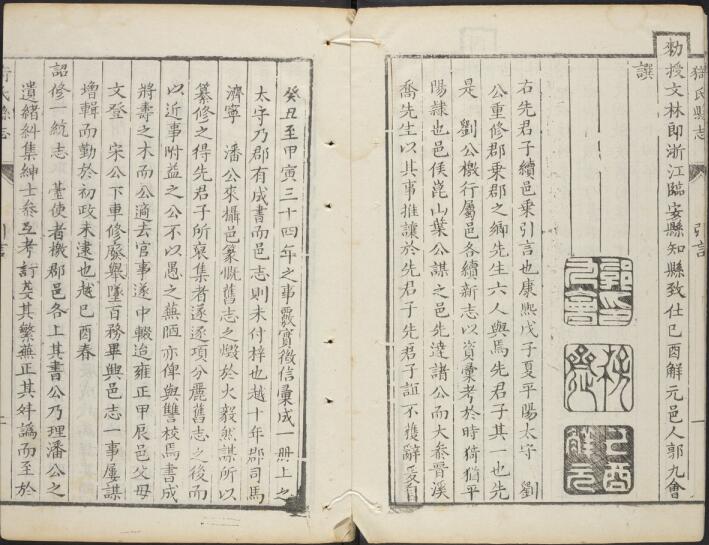 猗氏縣志 引言 一
勅授文林郎浙江臨安縣知縣致仕己酉解元邑人郭九會
譔
郭印九會
己酉解元
右先君子續邑乗引言也康熙戊子夏平陽太守 劉
公重修郡乗郡之鄉先生六人與焉先君子其一也先
是 劉公檄行屬邑各續新志以資彙考於時猗猶平
陽隷也邑侯崑山葉公謀之邑先達諸公而大叅晉溪
喬先生以其事推讓於先君子先君子誼不獲辭爰自
癸丑至甲寅三十四年之事覈實徵信彙成一冊上之
太守乃郡有成書而邑志則未付梓也越十年郡司馬
濟寧 潘公來攝邑篆慨舊志之燬於火毅然謀所以
纂修之得先君子所裒集者遂逐項分麗舊志之後而
以近事附益之公不以愚之蕪陋亦俾與讐校焉書成
將壽之木而公適去官事遂中輟迨雍正甲辰邑父母
文登 宋公下車修廢舉墜百務畢興邑志一事屢謀
增輯而勤於初政未逮也越己酉春
詔修一統志 臺使者檄郡邑各上其書公乃理潘公之
遺緒糾集紳士叅互考訂芟其繁蕪正其舛譌而至於
猗氏縣志 引言